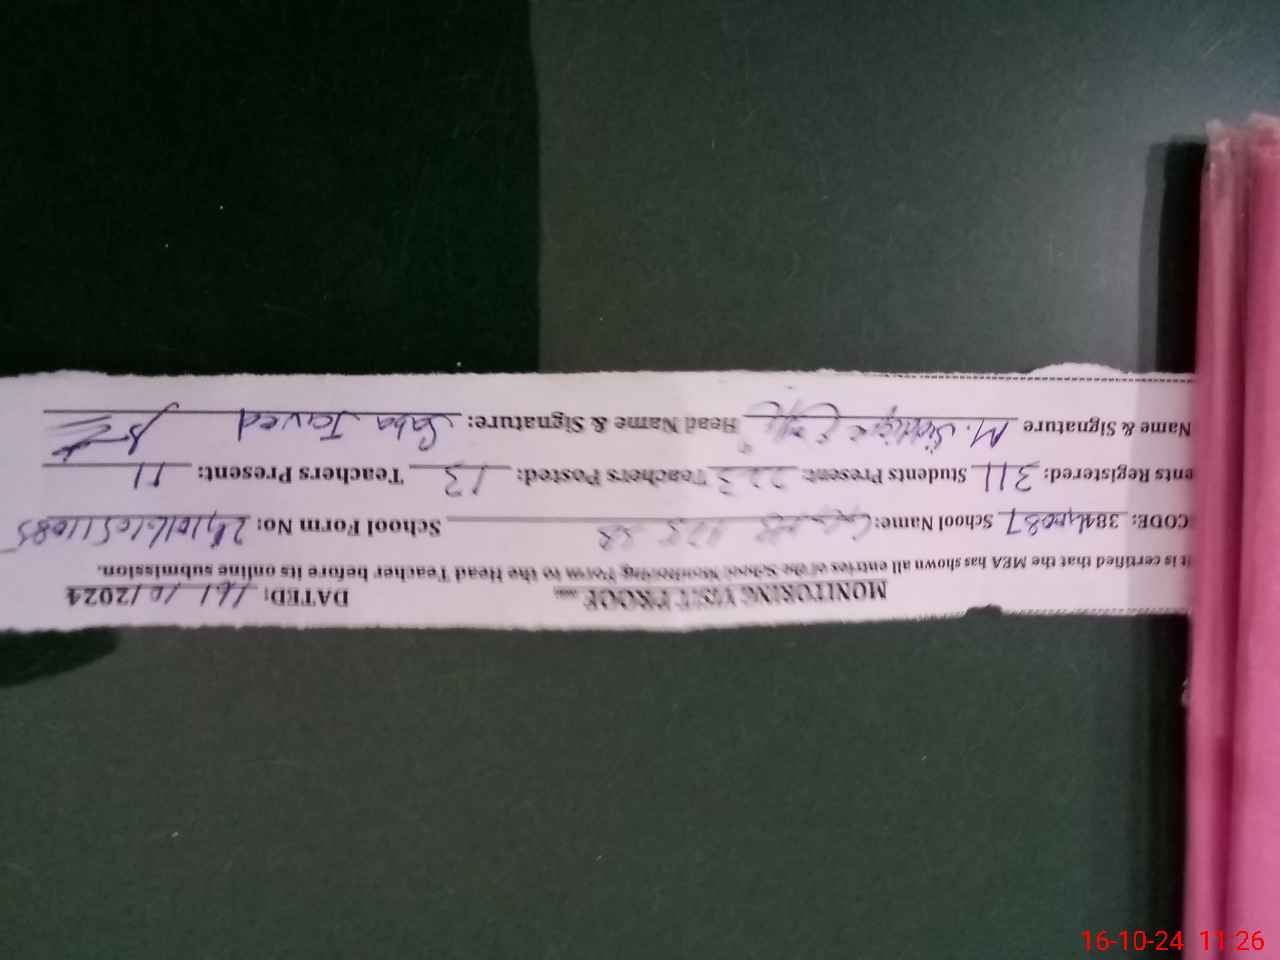 MONITORING VISIT PROOF DATED: 16/10/2024
It is certified that the MEA has shown all entries of the School Monitoring Form to the Head Teacher before its online submission.
CODE: School Name: School Form No:
ents Registered: 311 Students Present: 223 Teachers Posted: 13 Teachers Present: 11
Name & Signature M. Head Name & Signature: Saba Javed
16-10-24 11:26